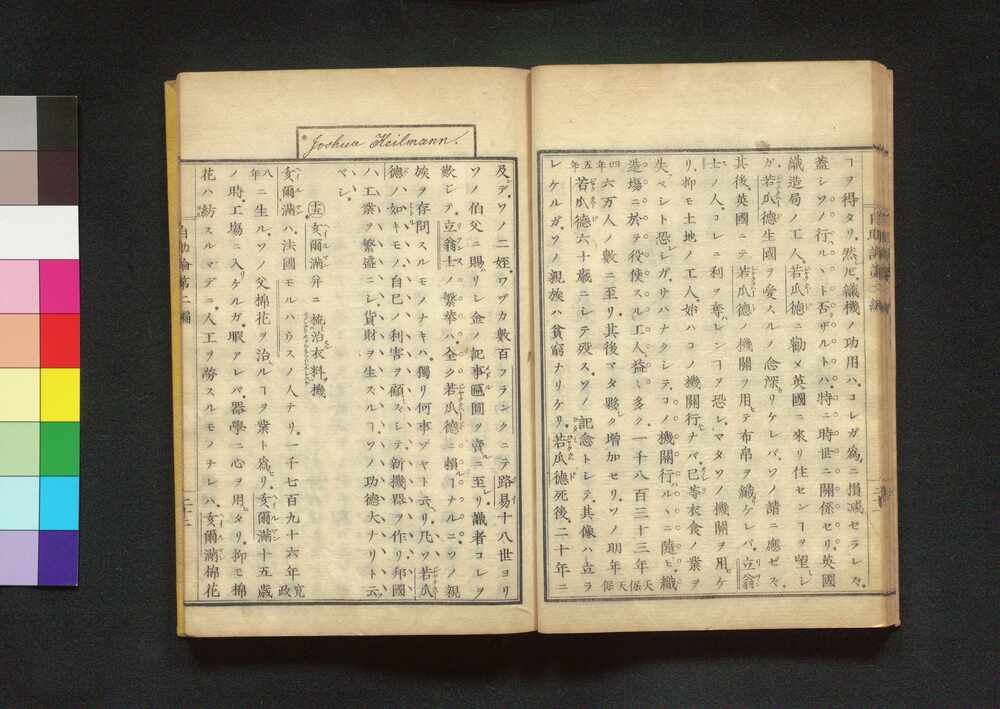 ヿヲ得タリ。然ドモ織機ノ功用ハコレガ爲ニ損减セラレズ。
蓋シソノ行ハルヽト否ザルトハ特ニ時世ニ關係セリ。英國
織造局ノ工人。若瓜德ニ勸メ英國ニ來リ住センヿヲ望シ
ガ若瓜德生國ヲ愛スルノ念深リケレバソノ請ニ應ゼズ。
其後。英國ニテ若瓜德ノ機關ヲ用テ布帛ヲ織ケレバ。立翁
士ノ人。コレニ利ヲ奪レンヿヲ恐レ。マタソノ機關ヲ用ケ
リ。抑モ土地ノ工人。始ハコノ機關行ナバ。已等衣食ノ業ヲ
失ベシト恐レシガ。サハナクシテ。コノ機關行ハルヽニ隨ヒ。織
造場ニ於テ役使スル工人。益〻多ク。一千八百三十三年天保
四年六万人ノ數ニ至リ。其後マタ夥シク增加セリ。ソノ明年天保
五年若瓜德六十歲ニシテ殁ス。ソノ記念トシテ。其像ハ立ラ
レケルガ。ソノ親族ハ貧窮ナリケリ。若瓜德死後。二十年ニ
Joshua Heilmann.
及デ。ソノ二姪。ワヅカ數百フランクニテ路易十八世ヨリ
ソノ伯父ニ賜リシ金ノ記事區圓ヲ賣ニ至リ。識者コレヲ
歎シテ。立翁士ノ繁華ハ全ク若瓜德ニ賴ヿナルニ。ソノ親
族ヲ存問スルモノナキハ。獨リ何事ゾヤト云リ。凡ソ若瓜
德ノ如キモノ。自已ノ利害ヲ顧ズシテ。新機器ヲ作リ。邦國
ハ工業ヲ繁盛ニシ。貨財ヲ生スルヿ。ソノ功德大ナリト云
ベシ。
十五 亥爾滿并ニ梳治衣料機
亥爾滿ハ法國モルハウスノ人ナリ。一千七百九十六年寬政
八年ニ生ル。ソノ父棉花ヲ治ルヿヲ業ト爲リ。亥爾滿十五歲
ノ時。工場ニ入リケルガ。暇アレバ。器學ニ心ヲ用タリ。抑モ棉
花ハ紡スルマデニ。人工ヲ勞スルモノナレバ。亥爾滿棉花
自助論第二編